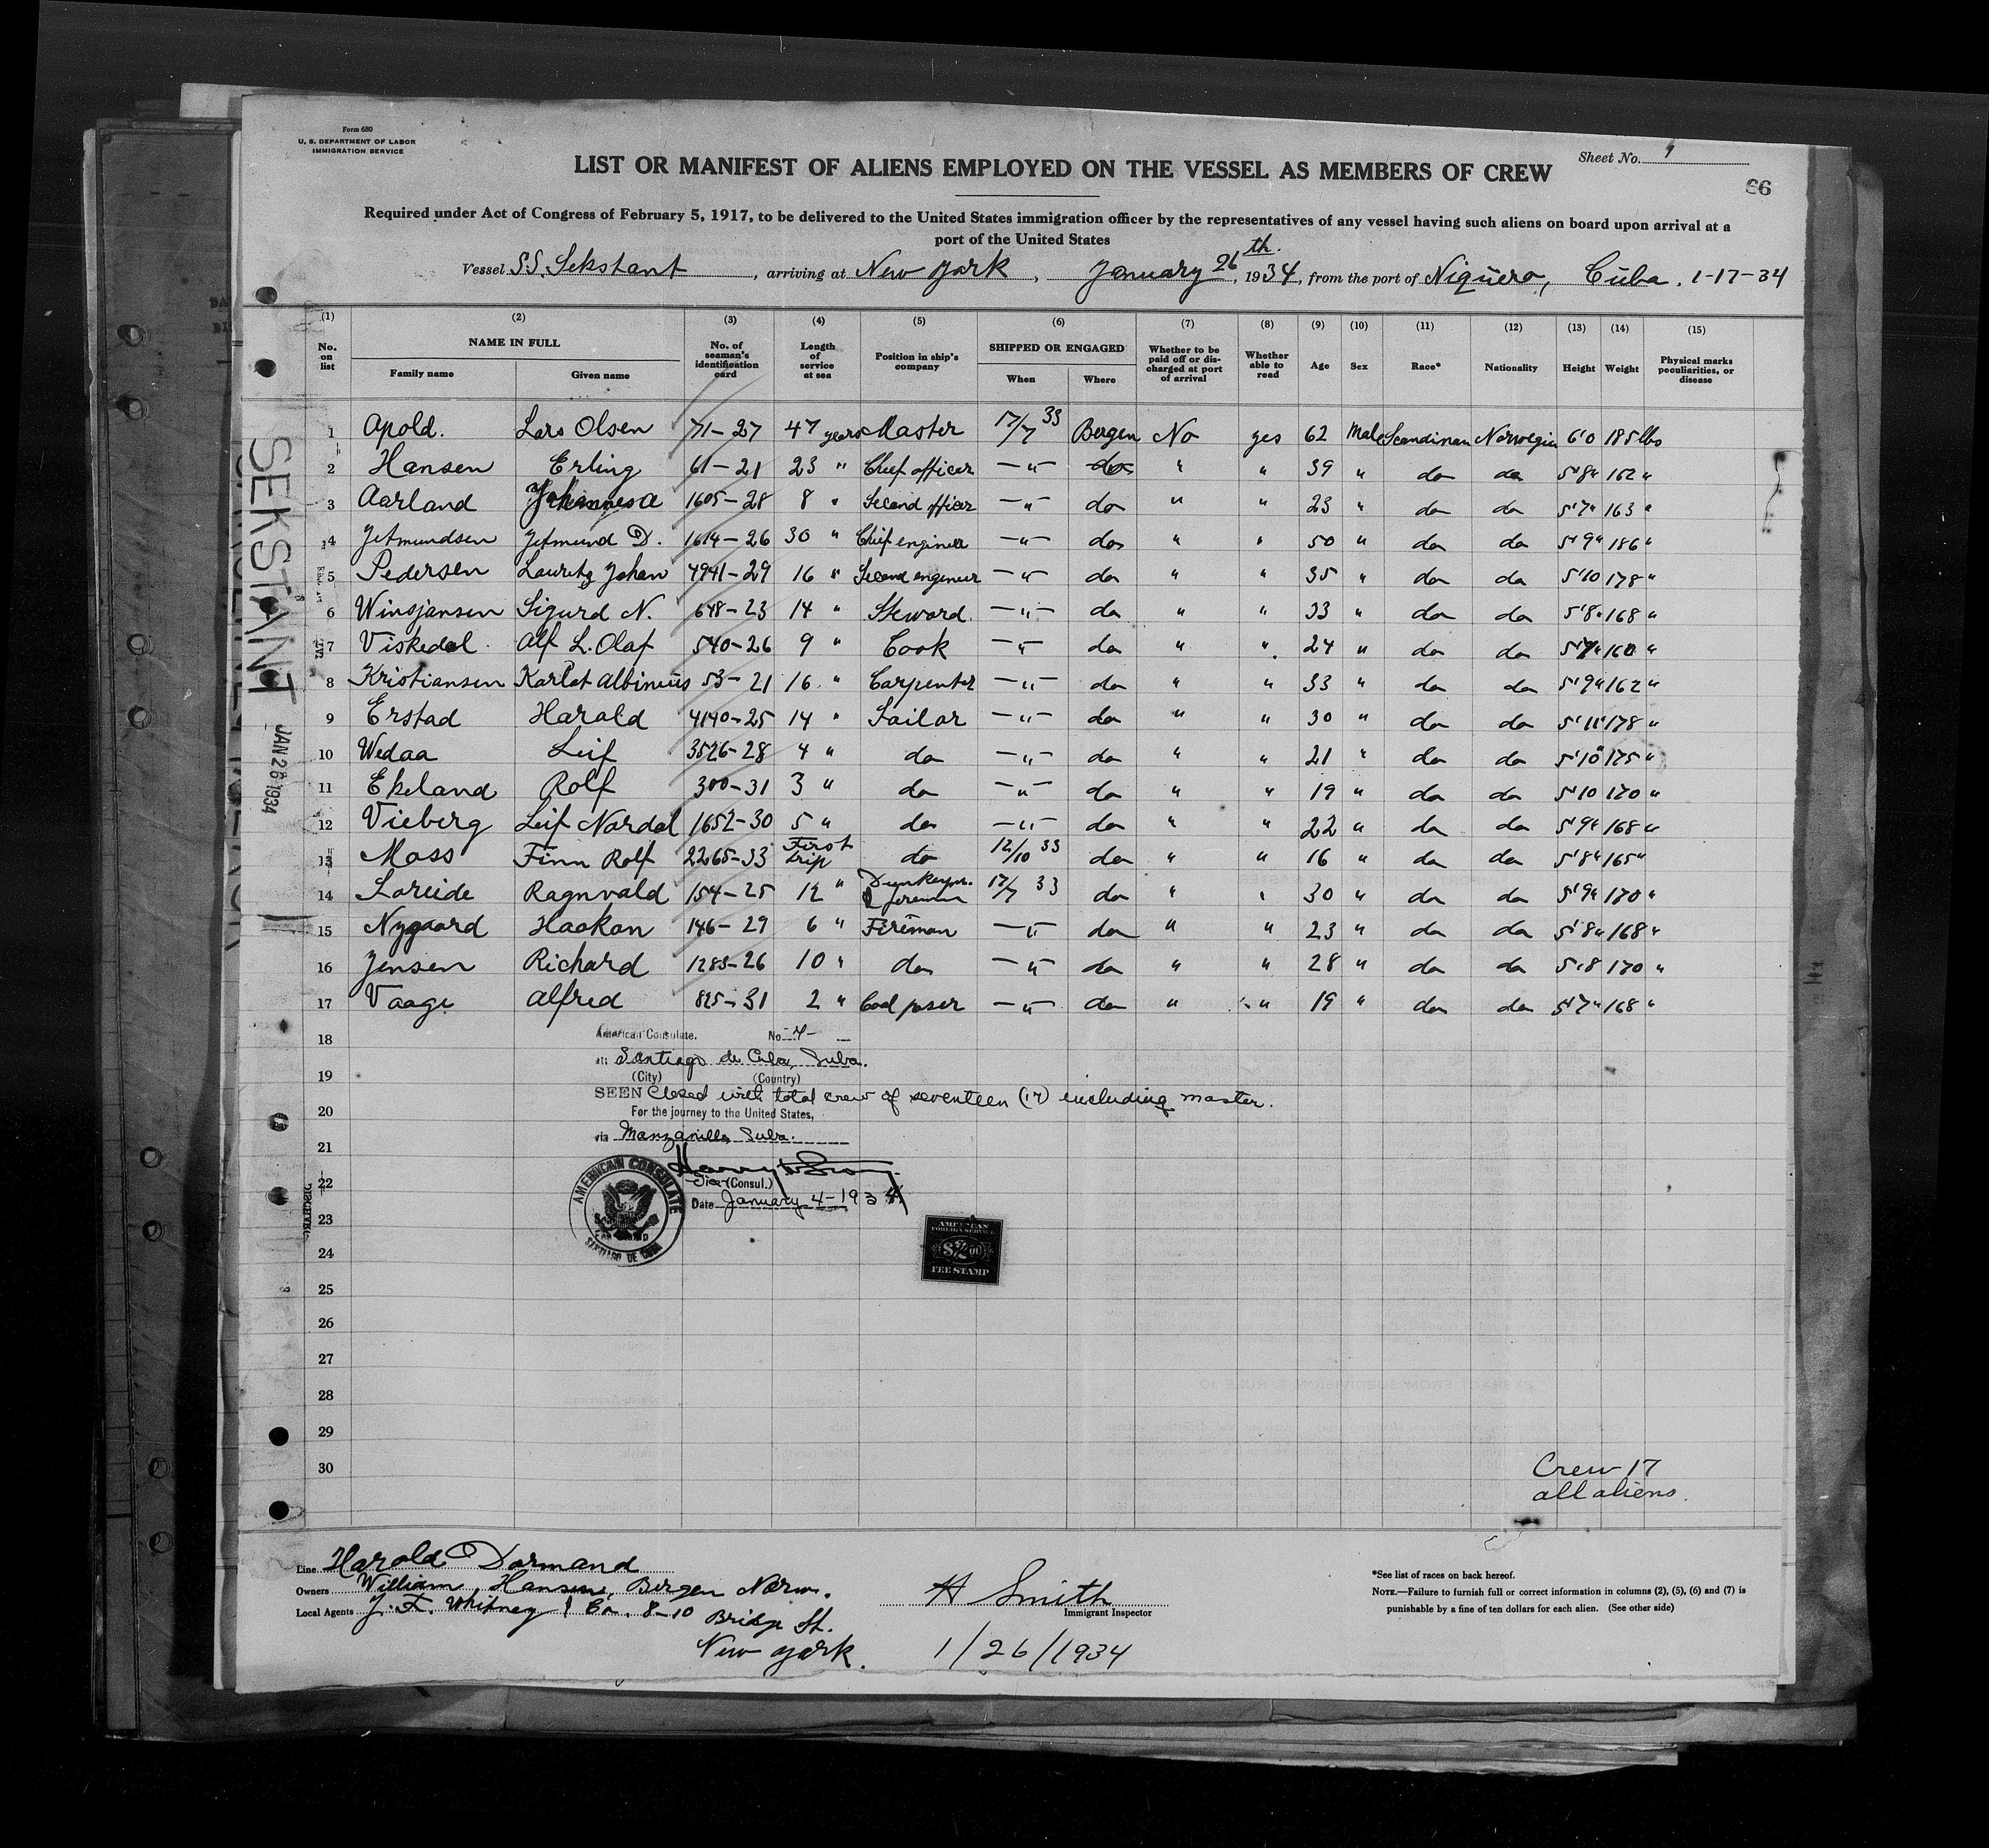 Form 680
U. S. DEPARTMENT OF LABOR
IMMIGRATION SERVICE
Sheet No. 1
LIST OR MANIFEST OF ALIENS EMPLOYED ON THE VESSEL AS MEMBERS OF CREW
66
Required under Act of Congress of February 5, 1917, to be delivered to the United States immigration officer by the representatives of any vessel having such aliens on board upon arrival at a
port of the United States
Vessel S.S. Sekstant, arriving at New York, January 26th. 1934, from the port of Niquero, Cuba. 1-17-34
(1) (2) (3) (4) (5) (6) (7) (8) (9) (10) (11) (12) (13) (14) (15)
No. on list NAME IN FULL Family name Given name No. of seaman's identification card Length of service at sea Position in ship's company SHIPPED OR ENGAGED When Where Whether to be paid off or discharged at port of arrival Whether able to read Age Sex Race* Nationality Height Weight Physical marks peculiarities, or disease
1 Apold. Lars Olsen 71-27 47 years Master 17/7 33 Bergen No yes 62 Male Scandinav Norwegia 6'0 185 lbs
2 Hansen Erling 61-21 23 " Chief officer -"- do " " 39 " do do 5'8" 162 "
3 Aarland Johannes A 1605-28 8 " Second officer -"- do " " 23 " do do 5'7" 163 "
4 Jetmundsen Jetmund D. 1614-26 30 " Chief engineer -"- do " " 50 " do do 5'9" 186 "
5 Pedersen Lauritz Johan 4941-29 16 " Second engineer -"- do " " 35 " do do 5'10 178 "
6 Winsjansen Sigurd N. 648-23 14 " Steward. -"- do " " 33 " do do 5'8" 168 "
7 Viskedal Alf L. Olaf 540-26 9 " Cook -"- do " " 24 " do do 5'7" 160 "
8 Kristiansen Karlot Albinius 53-21 16 " Carpenter -"- do " " 33 " do do 5'9" 162 "
9 Erstad Harald 4140-25 14 " Sailor -"- do " " 30 " do do 5'11" 178 "
10 Wedaa Leif 3526-28 4 " do -"- do " " 21 " do do 5'10" 175 "
11 Ekeland Rolf 300-31 3 " do -"- do " " 19 " do do 5'10 170 "
12 Vieberg Leif Nordal 1652-30 5 " do -"- do " " 22 " do do 5'9" 168 "
13 Moss Finn Rolf 2265-33 First trip do 12/10 33 do " " 16 " do do 5'8" 165 "
14 Loreide Ragnvald 154-25 12 " 17/7 33 do " " 30 " do do 5'9" 170 "
15 Nygaard Haakon 146-29 6 " Fireman -"- do " " 23 " do do 5'8" 168 "
16 Jensen Richard 1283-26 10 " do -"- do " " 28 " do do 5'8 170 "
17 Vaage Alfred 825-31 2 " Coal passer -"- do " " 19 " do do 5'7" 168 "
18
19
20
21
22
23
24
25
26
27
28
29
30
American Consulate. No. 4-
at Santiago de Cuba, Cuba.
(City) (Country)
SEEN Closed with total crew of seventeen (17) including master.
For the journey to the United States,
via Manzanillo, Cuba.
Vice-(Consul.)
Date January 4-1934
AMERICAN CONSULATE
SANTIAGO DE CUBA
AMERICAN
FOREIGN SERVICE
$2.00
FEE STAMP
SEKSTANT JAN 26 1934
Crew 17
all aliens.
Line Harold Dormand
Owners William Hansen, Bergen Norw.
Local Agents J. F. Whitney & Co. 8-10 Bridge St.
New York.
H Smith
Immigrant Inspector
1/26/1934
*See list of races on back hereof.
NOTE.—Failure to furnish full or correct information in columns (2), (5), (6) and (7) is
punishable by a fine of ten dollars for each alien. (See other side)